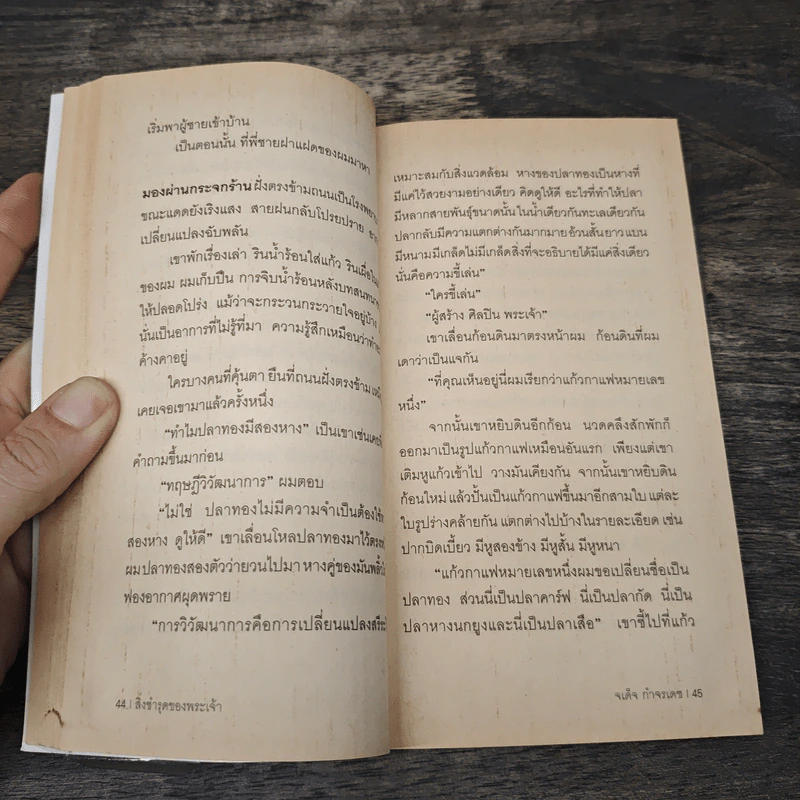 เริ่มพาผู้ชายเข้าบ้าน
เป็นตอนนั้น ที่พี่ชายฝาแฝดของผมมาหา
มองผ่านกระจกร้าน ฝั่งตรงข้ามถนนเป็นโรงพยา
ขณะแดดยังเริงแสง สายฝนกลับโปรยปราย
เปลี่ยนแปลงฉับพลัน
เขาพักเรื่องเล่า รินน้ำร้อนใส่แก้ว รินเผื่อ
ของผม ผมเก็บปืน การจิบน้ำร้อนหลังบทสนทนา
ให้ปลอดโปร่ง แม้ว่าจะกระวนกระวายใจอยู่บ้าง
นั่นเป็นอาการที่ไม่รู้ที่มา ความรู้สึกเหมือนว่าทำ
ค้างคาอยู่
ใครบางคนที่คุ้นตา ยืนที่ถนนฝั่งตรงข้าม
เคยเจอเขามาแล้วครั้งหนึ่ง
“ทำไมปลาทองมีสองหาง” เป็นเขาเช่นเคย
คำถามขึ้นมาก่อน
“ทฤษฎีวิวัฒนาการ” ผมตอบ
“ไม่ใช่ ปลาทองไม่มีความจำเป็นต้องใช้
สองหาง ดูให้ดี” เขาเลื่อนโหลปลาทองมาไว้ตรง
ผมปลาทองสองตัวว่ายวนไปมา หางคู่ของมันพลิ้ว
ฟองอากาศผุดพราย
“การวิวัฒนาการคือการเปลี่ยนแปลงสรีระ
44 | สิ่งชำรุดของพระเจ้า
เหมาะสมกับสิ่งแวดล้อม หางของปลาทองเป็นหางที่
มีแค่ไว้สวยงามอย่างเดียว คิดดูให้ดี อะไรที่ทำให้ปลา
มีหลากสายพันธุ์ขนาดนั้น ในน้ำเดียวกันทะเลเดียวกัน
ปลากลับมีความแตกต่างกันมากมาย อ้วนสั้นยาว แบน
มีหนามมีเกล็ดไม่มีเกล็ดสิ่งที่จะอธิบายได้มีแค่สิ่งเดียว
นั่นคือความขี้เล่น”
“ใครขี้เล่น”
“ผู้สร้าง ศิลปิน พระเจ้า”
เขาเลื่อนก้อนดินมาตรงหน้าผม ก้อนดินที่ผม
เดาว่าเป็นแจกัน
“ที่คุณเห็นอยู่นี่ผมเรียกว่าแก้วกาแฟหมายเลข
หนึ่ง”
จากนั้นเขาหยิบดินอีกก้อน นวดคลึงสักพักก็
ออกมาเป็นรูปแก้วกาแฟเหมือนอันแรก เพียงแต่เขา
เติมหูแก้วเข้าไป วางมันเคียงกัน จากนั้นเขาหยิบดิน
ก้อนใหม่ แล้วปั้นเป็นแก้วกาแฟขึ้นมาอีกสามใบ แต่ละ
ใบรูปร่างคล้ายกัน แตกต่างไปบ้างในรายละเอียด เช่น
ปากบิดเบี้ยว มีหูสองข้าง มีหูสั้น มีหูหนา
“แก้วกาแฟหมายเลขหนึ่งผมขอเปลี่ยนชื่อเป็น
ปลาทอง ส่วนนี่เป็นปลาคาร์ฟ นี่เป็นปลากัด นี่เป็น
ปลาหางนกยูงและนี่เป็นปลาเสือ” เขาชี้ไปที่แก้ว
จเด็จ กำจรเดช | 45